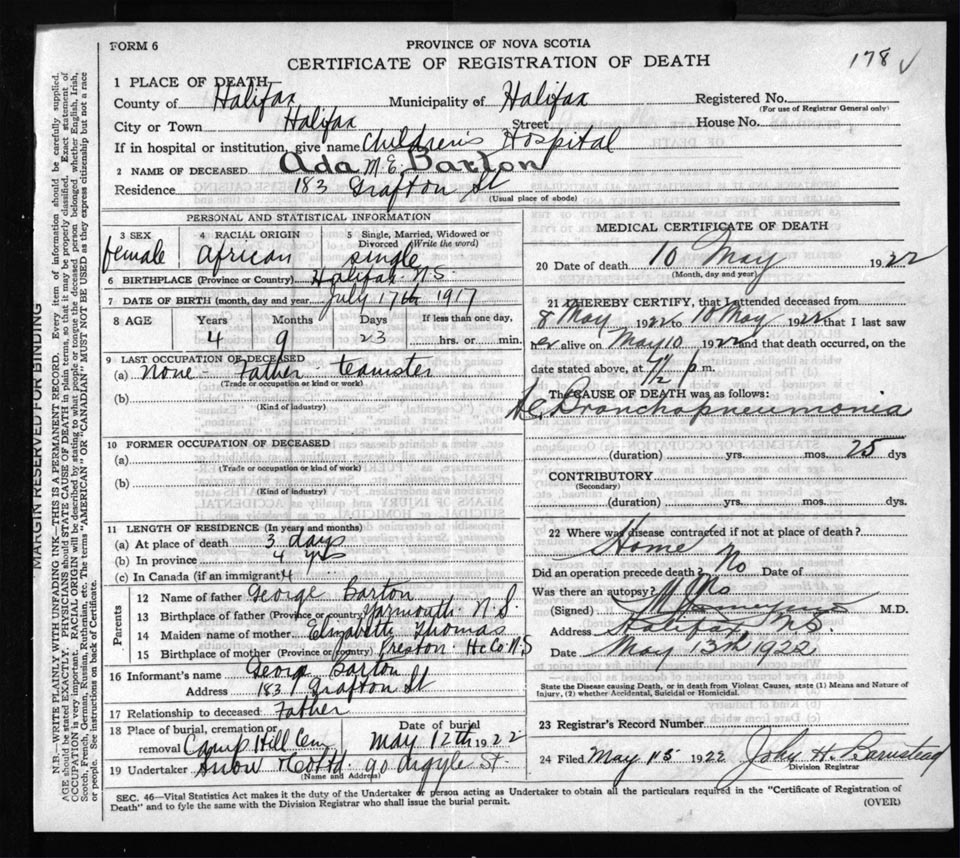 FORM 6
PROVINCE OF NOVA SCOTIA
CERTIFICATE OF REGISTRATION OF DEATH
178 ✓
1 PLACE OF DEATH—
County of Halifax Municipality of Halifax Registered No.
(For use of Registrar General only)
City or Town Halifax Street House No.
If in hospital or institution, give name Children's Hospital
2 NAME OF DECEASED Ada M. E. Barton
Residence 183 Grafton St
(Usual place of abode)
PERSONAL AND STATISTICAL INFORMATION
3 SEX 4 RACIAL ORIGIN 5 Single, Married, Widowed or Divorced (Write the word)
female African single
6 BIRTHPLACE (Province or Country) Halifax N.S.
7 DATE OF BIRTH (month, day and year July 17th 1917
8 AGE Years Months Days If less than one day,
4 9 23 hrs. or min.
9 LAST OCCUPATION OF DECEASED
(a) None - Father - teamster
(Trade or occupation or kind or work)
(b)
(Kind of industry)
10 FORMER OCCUPATION OF DECEASED
(a)
(Trade or occupation or kind of work)
(b)
(Kind of industry)
11 LENGTH OF RESIDENCE (In years and months)
(a) At place of death 3 days
(b) In province 4 yrs
(c) In Canada (if an immigrant 4
Parents
12 Name of father George Barton
13 Birthplace of father (Province or country) Yarmouth N.S.
14 Maiden name of mother Elizabeth Thomas
15 Birthplace of mother (Province or country) Preston Hx Co N.S
16 Informant's name George Barton
Address 183 Grafton St
17 Relationship to deceased Father
18 Place of burial, cremation or removal Camp Hill Cem Date of burial May 12th 1922
19 Undertaker Snow & Co Ltd 90 Argyle St.
(Name and Address)
MEDICAL CERTIFICATE OF DEATH
20 Date of death 10 May 1922
(Month, day and year)
21 I HEREBY CERTIFY, that I attended deceased from
8 May 1922 to 10 May 1922 that I last saw
her alive on May 10 1922 and that death occurred, on the
date stated above, at p.m.
The CAUSE OF DEATH was as follows:
Bronchopneumonia
(duration) yrs. mos. 25 dys
CONTRIBUTORY
(Secondary)
(duration) yrs. mos. dys.
22 Where was disease contracted if not at place of death?
Home
Did an operation precede death? No Date of
Was there an autopsy? No
(Signed) M.D.
Address Halifax, N.S.
Date May 13th 1922
State the Disease causing Death, or in death from Violent Causes, state (1) Means and Nature of
Injury, (2) whether Accidental, Suicidal or Homicidal.
23 Registrar's Record Number
24 Filed May 15 1922 John H. Barnstead
Division Registrar
SEC. 46—Vital Statistics Act makes it the duty of the Undertaker or person acting as Undertaker to obtain all the particulars required in the "Certificate of Registration of
Death" and to fyle the same with the Division Registrar who shall issue the burial permit.
(OVER)
MARGIN RESERVED FOR BINDING
N.B.—WRITE PLAINLY WITH UNFADING INK—THIS IS A PERMANENT RECORD. Every item of information should be carefully supplied.
AGE should be stated EXACTLY. PHYSICIANS should STATE CAUSE OF DEATH in plain terms, so that it may be properly classified. Exact statement of
OCCUPATION is very important. RACIAL ORIGIN will be described by stating to what people or tongue the deceased person belonged whether English, Irish,
Scotch, French, German, Russian, Ruthenian, etc. The terms "AMERICAN" OR "CANADIAN" MUST NOT BE USED as they express citizenship but not a race
or people. See instructions on back of Certificate.